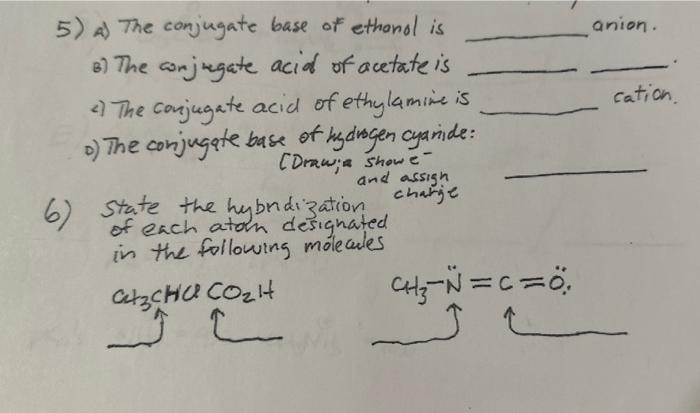 5) A) The conjugate base of ethanol is ________ anion.
B) The conjugate acid of acetate is ________ ________.
c) The conjugate acid of ethylamine is ________ cation.
D) The conjugate base of hydrogen cyanide:
[Draw; show e⁻
and assign
charge
6) State the hybridization
of each atom designated
in the following molecules
CH₃CHCl CO₂H
CH₃-N̈=C=Ö: